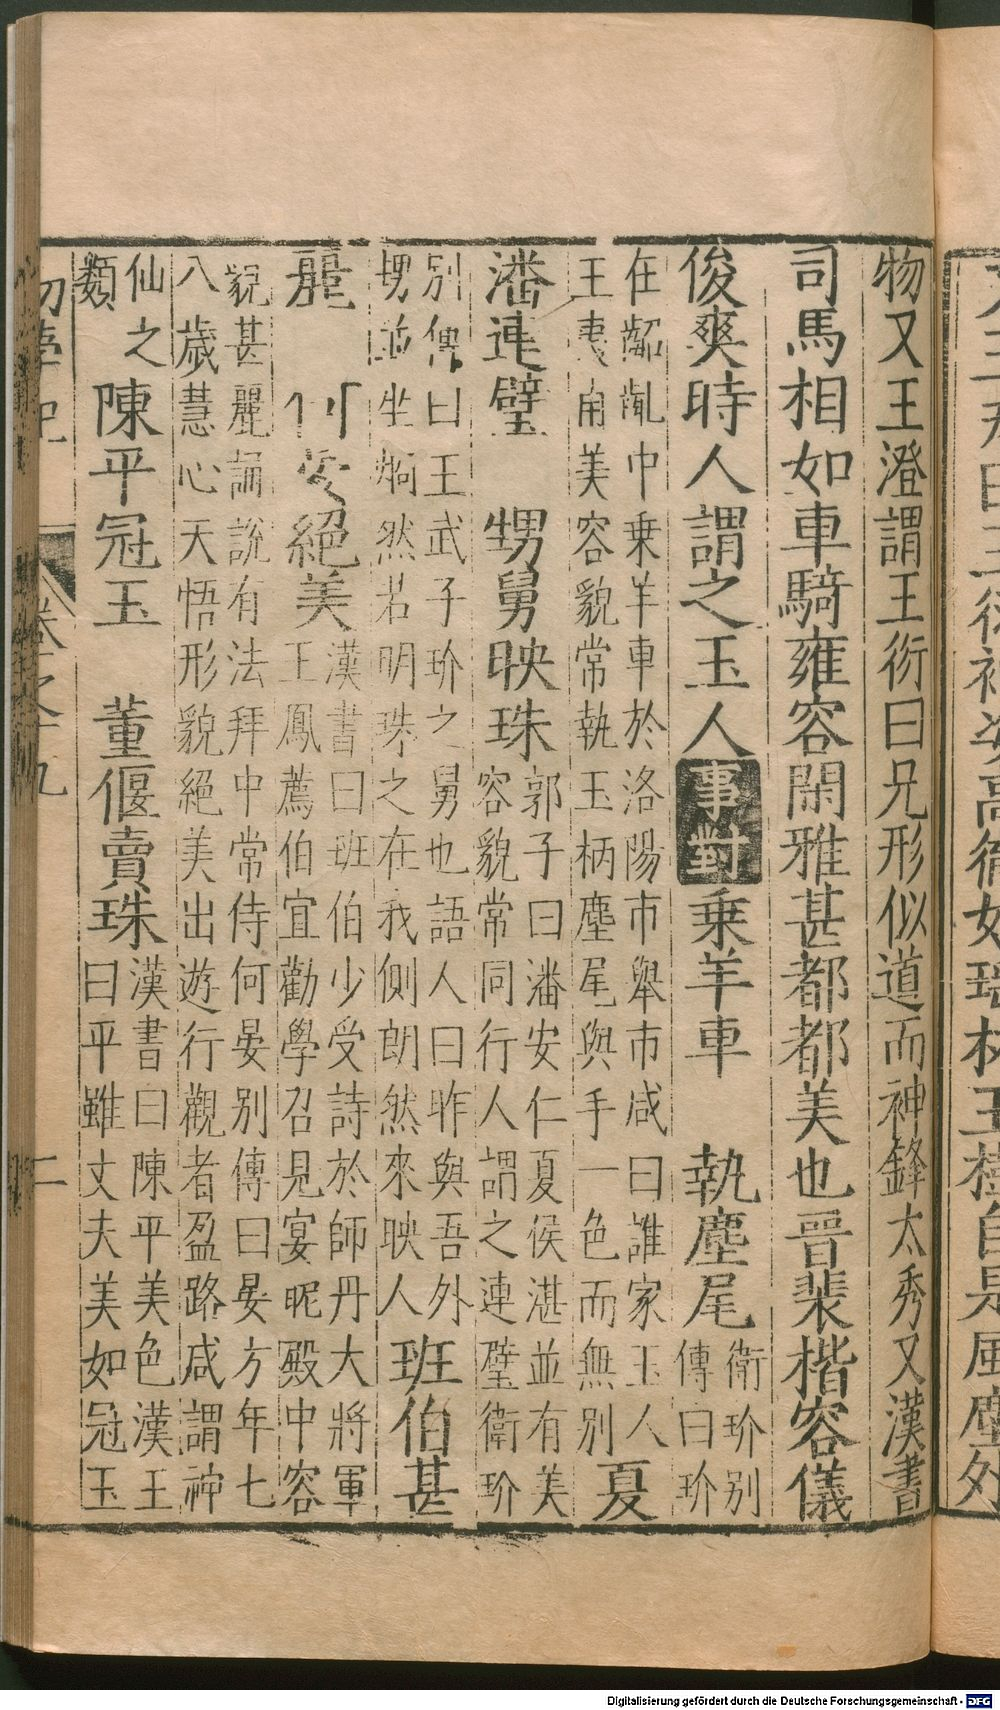 王衍神姿高徹如瑶林玉樹自是風塵外
物又王澄謂王衍曰兄形似道而神鋒太秀又漢書
司馬相如車騎雍容閑雅甚都都美也晉裴楷容儀
俊爽時人謂之玉人 事對 乗羊車 執塵尾 衛玠別傳曰玠
在齠齓中乗羊車於洛陽市舉市咸曰誰家玉人王夷甫美容貌常執玉柄塵尾與手一色而無別 夏
潘連璧 甥舅映珠 郭子曰潘安仁夏侯湛並有美容貌常同行人謂之連璧衛玠
別傳曰王武子玠之舅也語人曰昨與吾外甥並坐炯然若明珠之在我側朗然來映人 班伯甚
麗 何晏絕美 漢書曰班伯少受詩於師丹大將軍王鳳薦伯宜勸學召見宴昵殿中容
貌甚麗誦說有法拜中常侍何晏別傳曰晏方年七八歲慧心天悟形貌絕美出遊行觀者盈路咸謂神
仙之類 陳平冠玉 董偃賣珠 漢書曰陳平美色漢王曰平雖丈夫美如冠玉
初學記 卷之十九 二
Digitalisierung gefördert durch die Deutsche Forschungsgemeinschaft - DFG